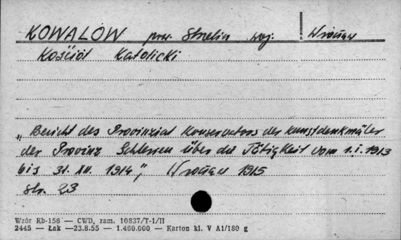 KOWALÓW pow. Strzelin woj. Wrocław
Kościół Katolicki
„Bericht des Provinzial Konservators der Kunstdenkmäler
der Provinz Schlesien über die Tätigkeit vom 1.I.1913
bis 31.XII.1914”, Wrocław 1915
str. 23
Wzór Kb-156 — CWD, zam. 10837/T-1/II
2445 — Łak —23.8.55 — 1.460.000 — Karton kl. V A1/180 g